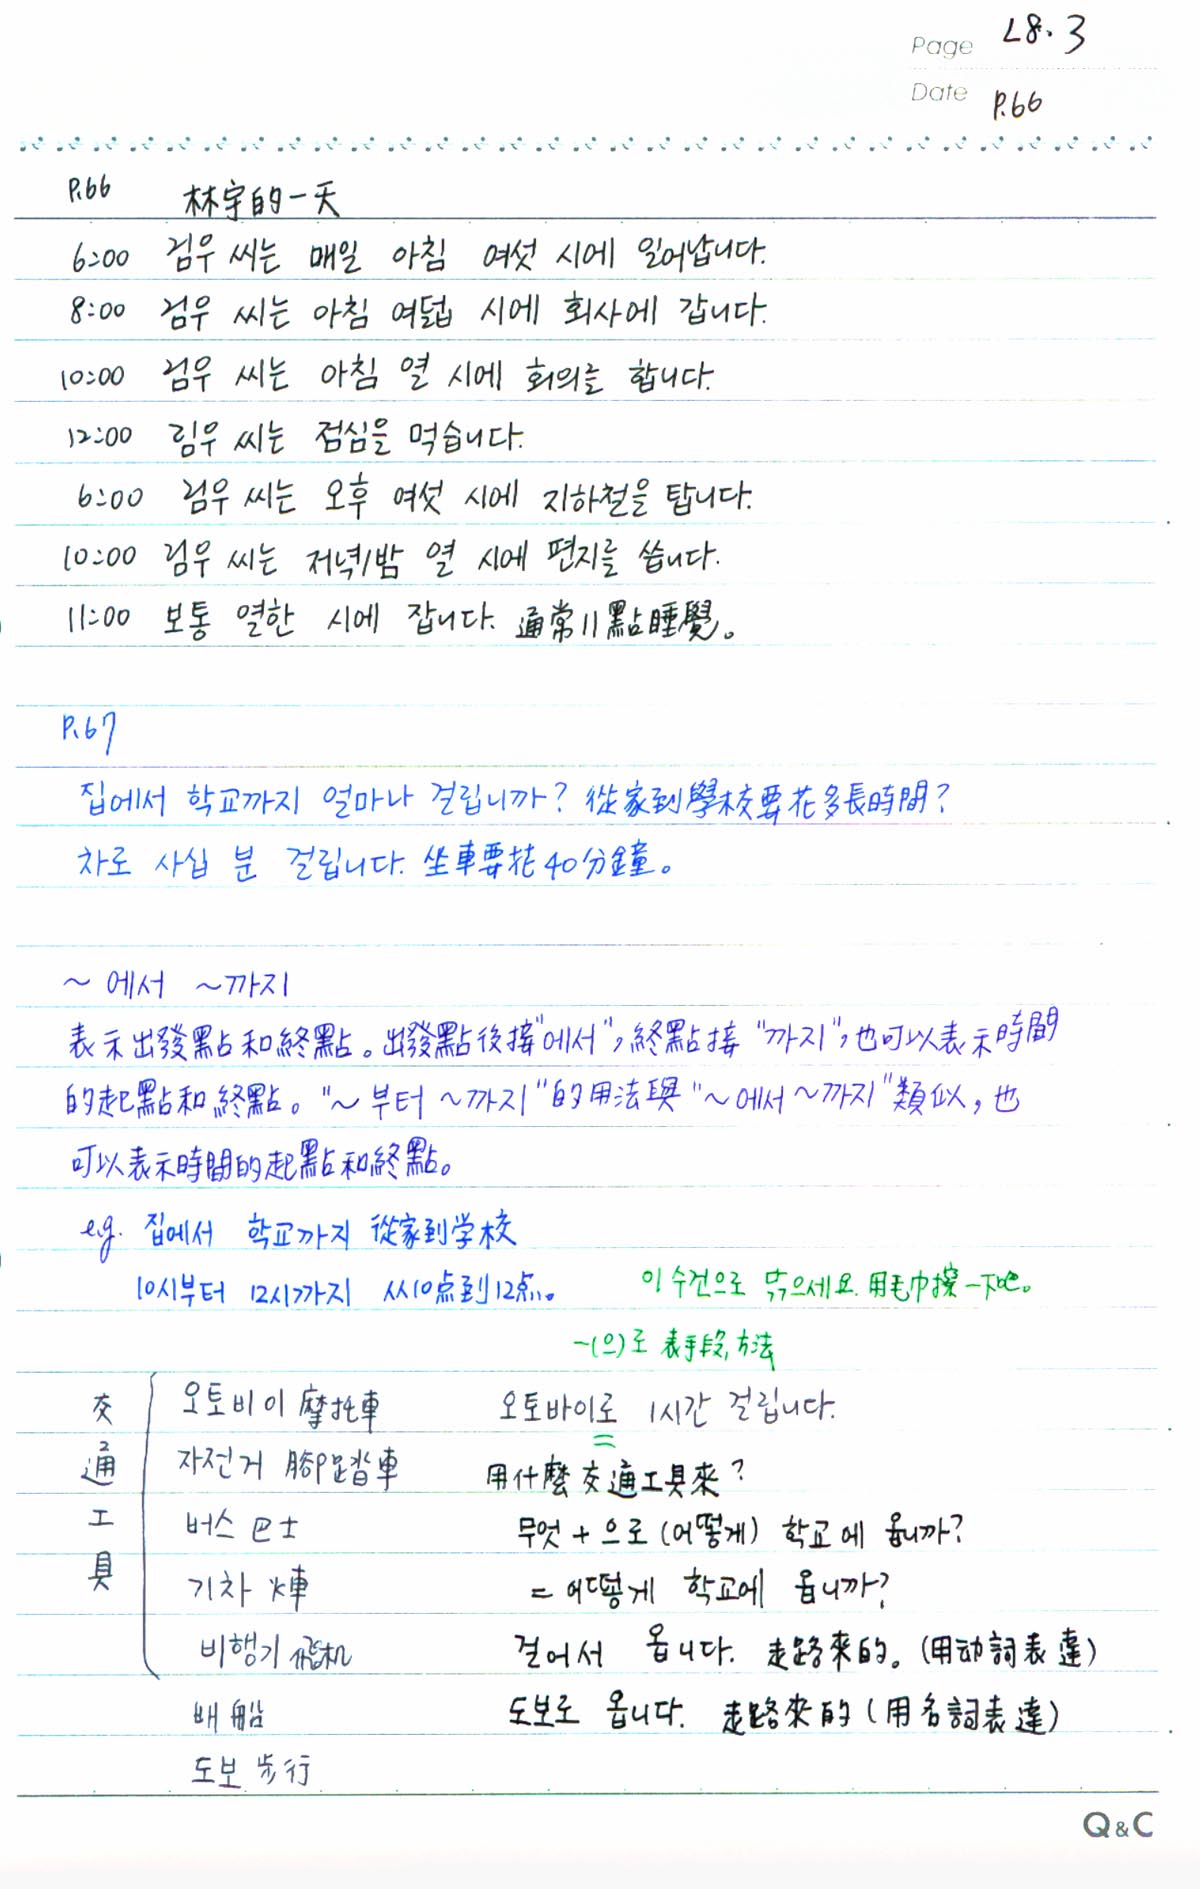 Page L8.3
Date P.66
P.66 林宇的一天
6:00 림우 씨는 매일 아침 여섯 시에 일어납니다.
8:00 림우 씨는 아침 여덟 시에 회사에 갑니다.
10:00 림우 씨는 아침 열 시에 회의를 합니다.
12:00 림우 씨는 점심을 먹습니다.
6:00 림우 씨는 오후 여섯 시에 지하철을 탑니다.
10:00 림우 씨는 저녁/밤 열 시에 편지를 씁니다.
11:00 보통 열한 시에 잡니다. 通常11點睡覺。
P.67
집에서 학교까지 얼마나 걸립니까? 從家到學校要花多長時間?
차로 사십 분 걸립니다. 坐車要花40分鐘。
~에서 ~까지
表示出發點和終點。出發點後接"에서",終點接"까지",也可以表示時間
的起點和終點。"~부터 ~까지"的用法與"~에서 ~까지"類似,也
可以表示時間的起點和終點。
e.g. 집에서 학교까지 從家到学校
10시부터 12시까지 从10点到12点。 이 수건으로 닦으세요. 用毛巾擦一下吧。
~(으)로 表手段,方法
交通工具
오토비이 摩托車 오토바이로 1시간 걸립니다.
자전거 腳踏車 用什麼交通工具來?
버스 巴士 무엇 + 으로 (어떻게) 학교에 옵니까?
기차 火車 = 어떻게 학교에 옵니까?
비행기 飛机 걸어서 옵니다. 走路來的。(用动詞表達)
배 船 도보로 옵니다. 走路來的 (用名詞表達)
도보 步行
Q&C